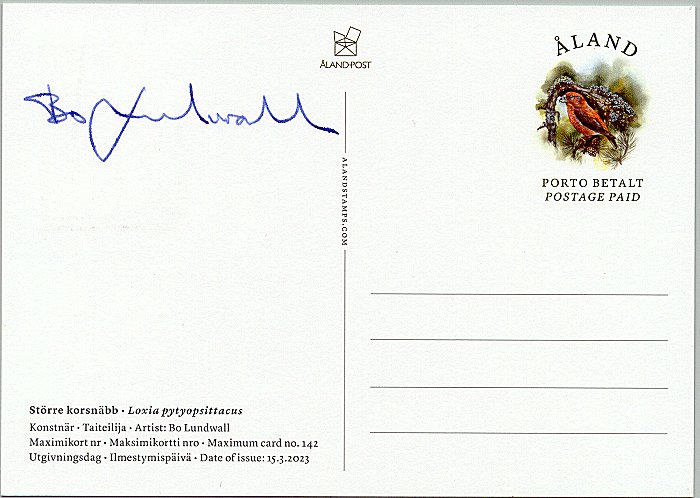 ÅLAND·POST
ÅLAND
PORTO BETALT
POSTAGE PAID
Bo Lundwall
ALANDSTAMPS.COM
Större korsnäbb · Loxia pytyopsittacus
Konstnär · Taiteilija · Artist: Bo Lundwall
Maximikort nr · Maksimikortti nro · Maximum card no. 142
Utgivningsdag · Ilmestymispäivä · Date of issue: 15.3.2023